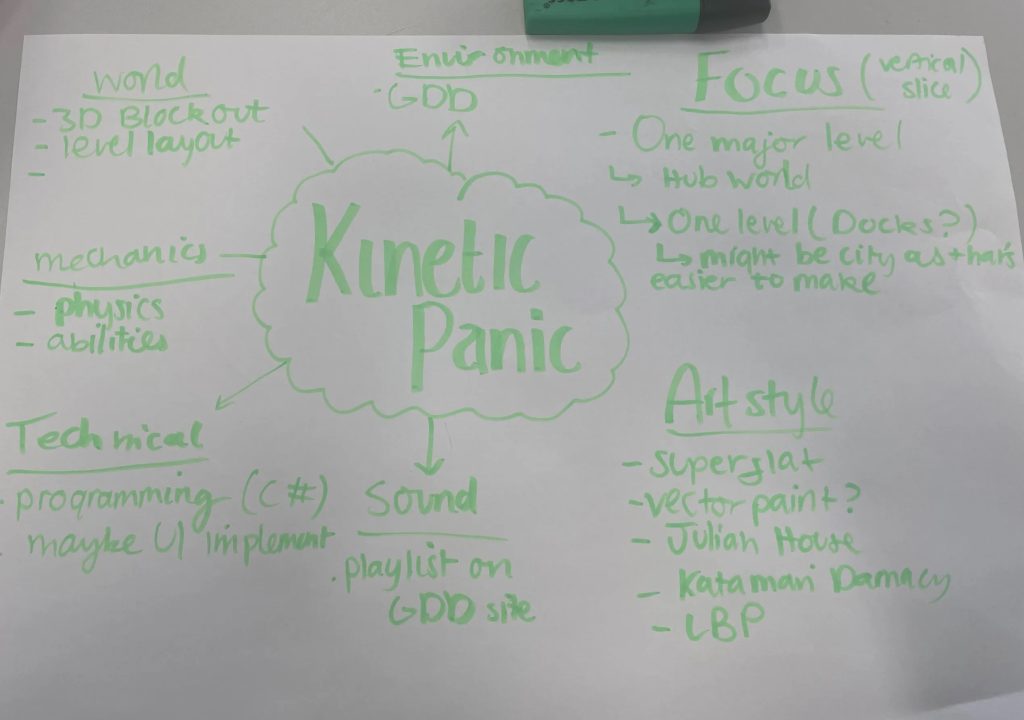 World
- 3D Blockout
- level layout
-
Environment
· GDD
Focus (vertical slice)
- One major level
↳ Hub world
↳ One level (Docks?)
↳ might be city as thats
easier to make
mechanics
- physics
- abilities
Kinetic
Panic
Technical
· programming (C#)
· maybe UI implement
Sound
· playlist on
GDD site
Art style
- superflat
- vector paint?
- Julian House
- Katamari Damacy
- LBP